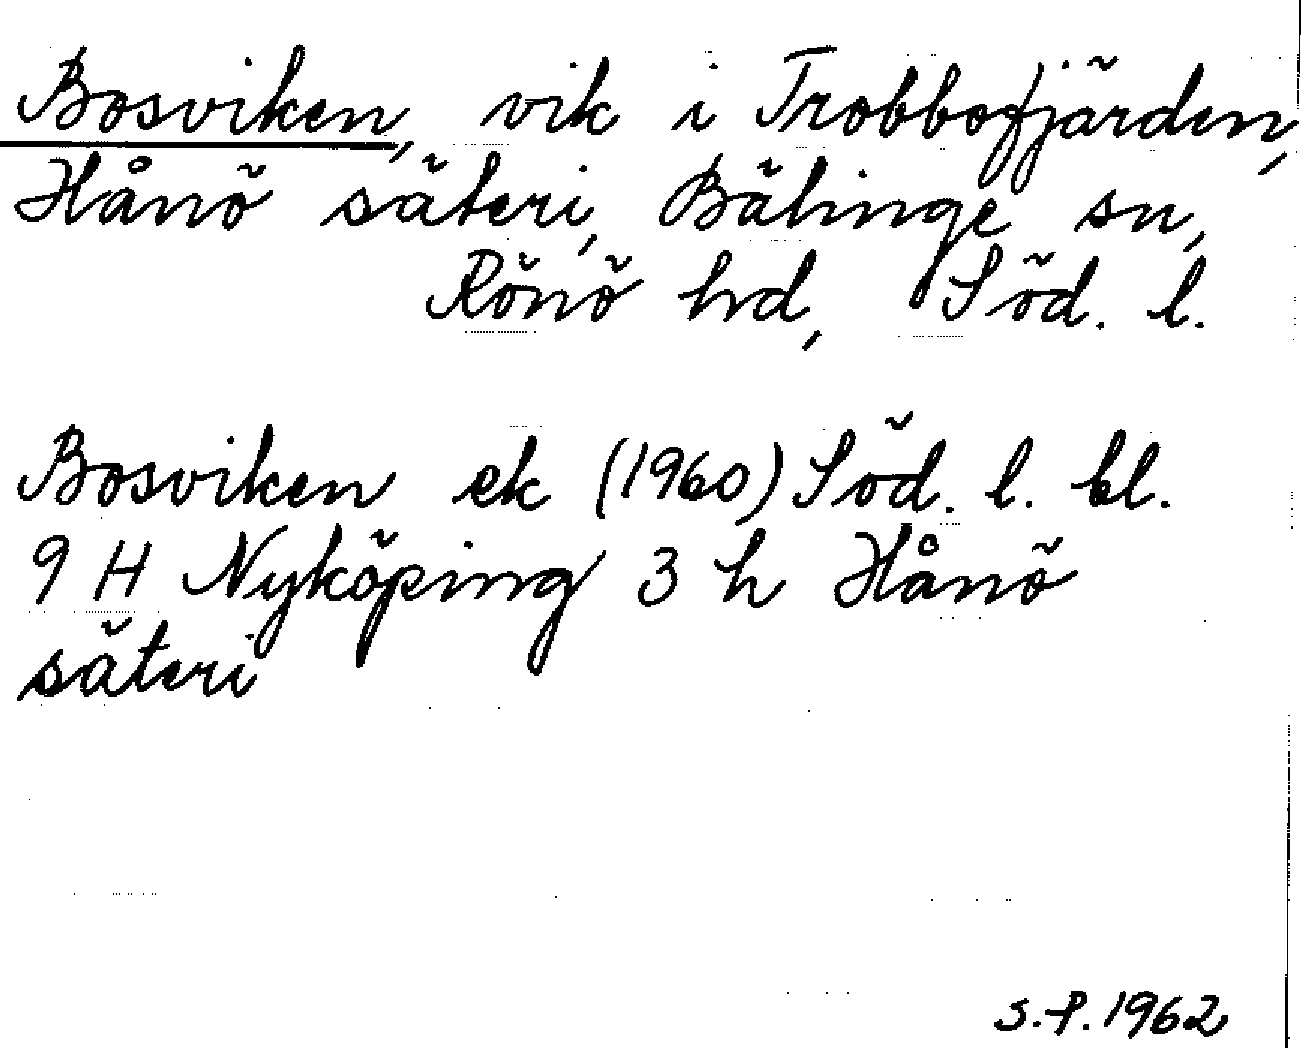 Bosviken, vik i Trobbofjärden,
Hånö säteri, Bälinge sn,
Rönö hd, Söd. l.
Bosviken ek (1960) Söd. l. bl.
9 H Nyköping 3 h Hånö
säteri
S.-P. 1962